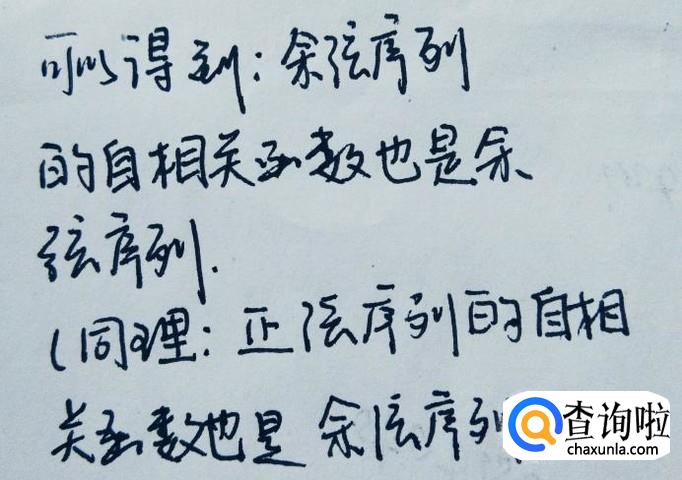 可以得到：余弦序列
的自相关函数也是余
弦序列.
(同理：正弦序列的自相
关函数也是 余弦序列
查询啦
chaxunla.com